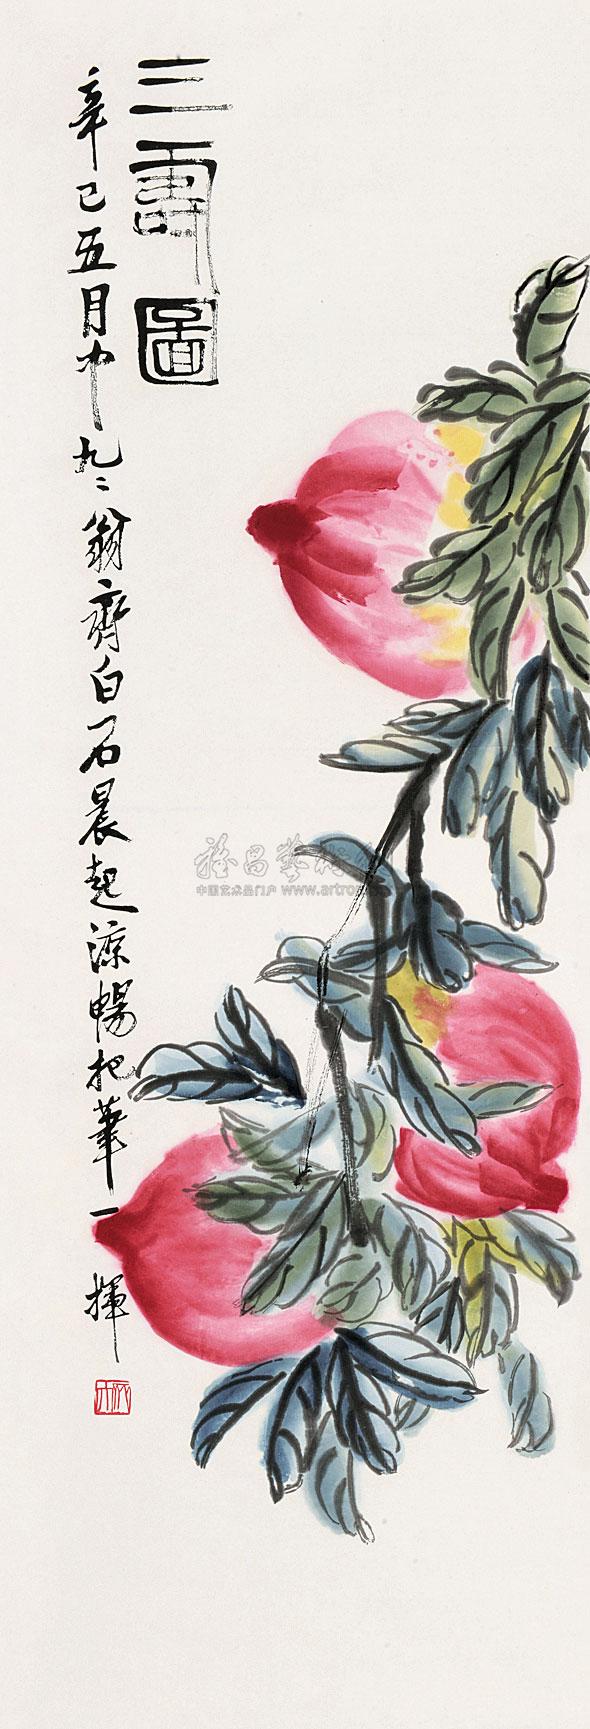 三壽圖
辛巳五月中九二翁齊白石晨起涼暢把筆一揮
雅昌藝術網
中国艺术品门户 www.artro